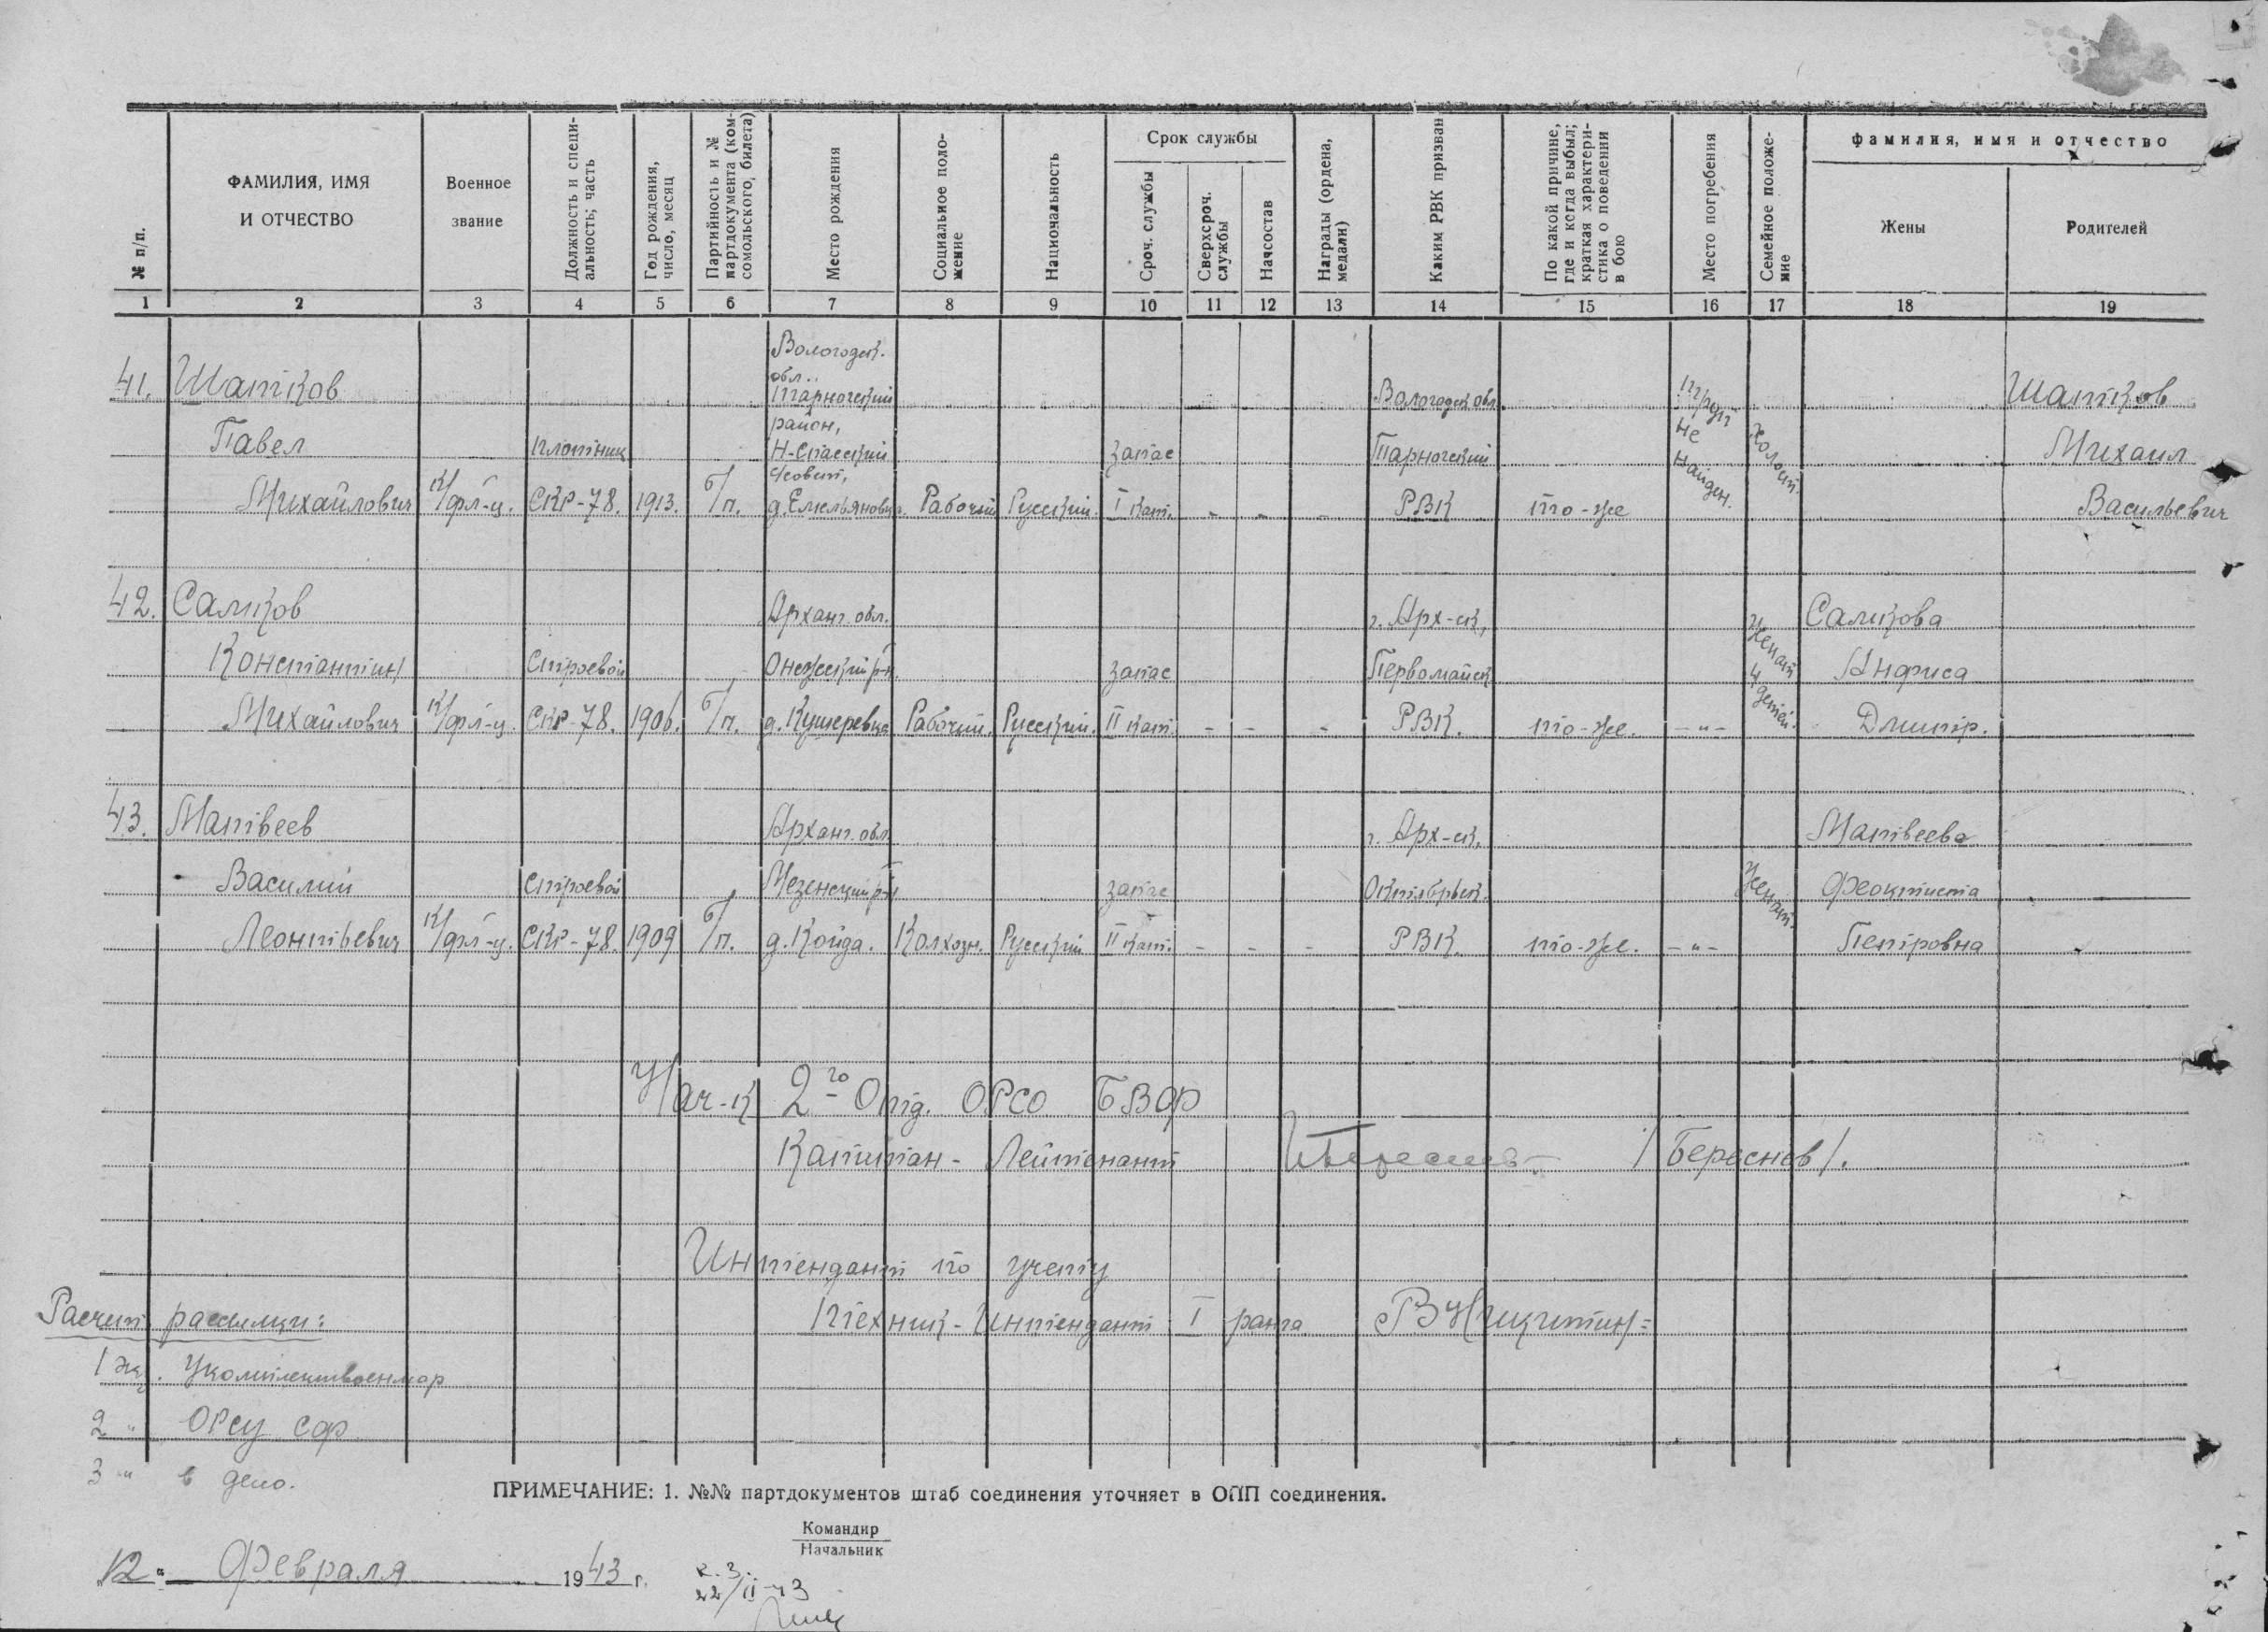 № п/п.
ФАМИЛИЯ, ИМЯ
И ОТЧЕСТВО
Военное
звание
Должность и специ-
альность; часть
Год рождения,
число, месяц
Партийность и №
партдокумента (ком-
сомольского, билета)
Место рождения
Социальное поло-
жение
Национальность
Срок службы
Сроч. службы
Сверхсроч.
службы
Начсостав
Награды (ордена,
медали)
Каким РВК призван
По какой причине,
где и когда выбыл;
краткая характери-
стика о поведении
в бою
Место погребения
Семейное положе-
ние
фамилия, имя и отчество
Жены
Родителей
1 2 3 4 5 6 7 8 9 10 11 12 13 14 15 16 17 18 19
41. Шатков
Павел
Михайлович
К/фл-ц.
плотник
СКР-78.
1913.
б/п.
Вологодск.
обл..
Тарногский
район,
Н-Спасский
д. Емельяновск.
Рабочий
Русский.
запас
I кат.
- - -
Вологодск обл
Тарногский
РВК
то-же
труп
не
найден.
холост.
Шатков
Михаил
Васильевич
42. Самков
Константин
Михайлович
К/фл-ц.
Строевой
СКР-78.
1906.
б/п.
Арханг. обл.
Онежский р-н
д. Кушеревка
Рабочий.
Русский.
запас
II кат.
- - -
г. Арх-ск,
Первомайск
РВК.
то-же.
-"-
Женат
4 детей.
Самкова
Анфиса
Дмитр.
43. Матвеев
Василий
Леонтьевич
К/фл-ц.
Строевой
СКР-78.
1909
б/п.
Арханг. обл
Мезенский р-н
д. Койда.
Колхозн.
Русский
запас
II кат.
- - -
г. Арх-ск,
Октябрьск.
РВК.
то-же.
-"-
Женат.
Матвеева
Феоктиста
Петровна
Нач-к 2го Отд. ОРСО БВФ
Капитан-Лейтенант /Береснев/.
Интендант по учету
Техник-Интендант I ранга
Расчет рассылки:
1 экз. Укомплектвоенмор
2 " ОРСУ СФ
3 " в дело.
ПРИМЕЧАНИЕ: 1. №№ партдокументов штаб соединения уточняет в ОПП соединения.
Командир
Начальник
"12" Февраля 1943 г.
22/II-43